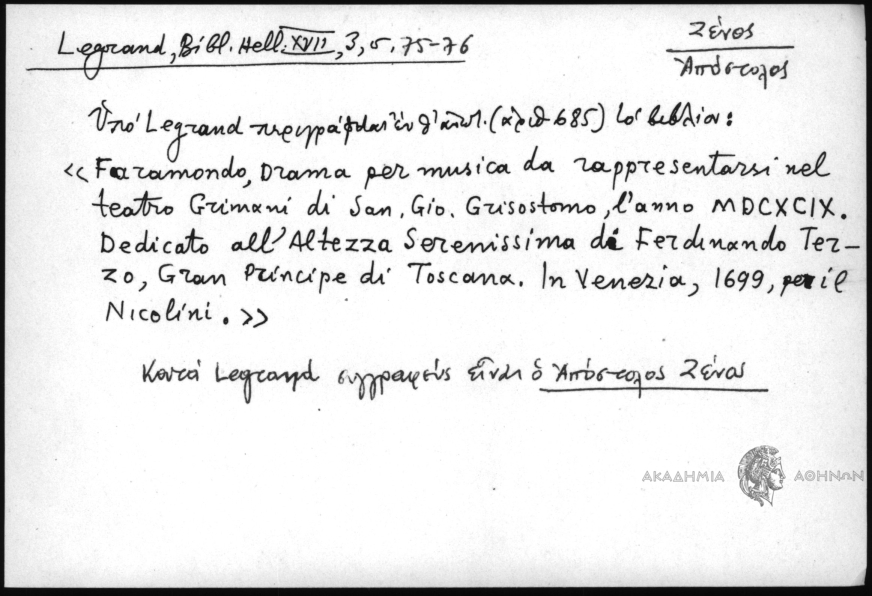 Legrand, Bibl. Hell. XVII, 3, σ. 75-76
Ζένος
Ἀπόστολος
Ὑπό Legrand περιγράφεται ἐν (ἀριθ 685) τό βιβλίον:
«Faramondo, Drama per musica da rappresentarsi nel
teatro Grimani di San. Gio. Grisostomo, l'anno MDCXCIX.
Dedicato all'Altezza Seremissima di Ferdinando Ter-
zo, Gran Principe di Toscana. In Venezia, 1699, per il
Nicolini.»
Κατά Legrand συγγραφεύς εἶναι ὁ Ἀπόστολος Ζένος
ΑΚΑΔΗΜΙΑ ΑΘΗΝΩΝ